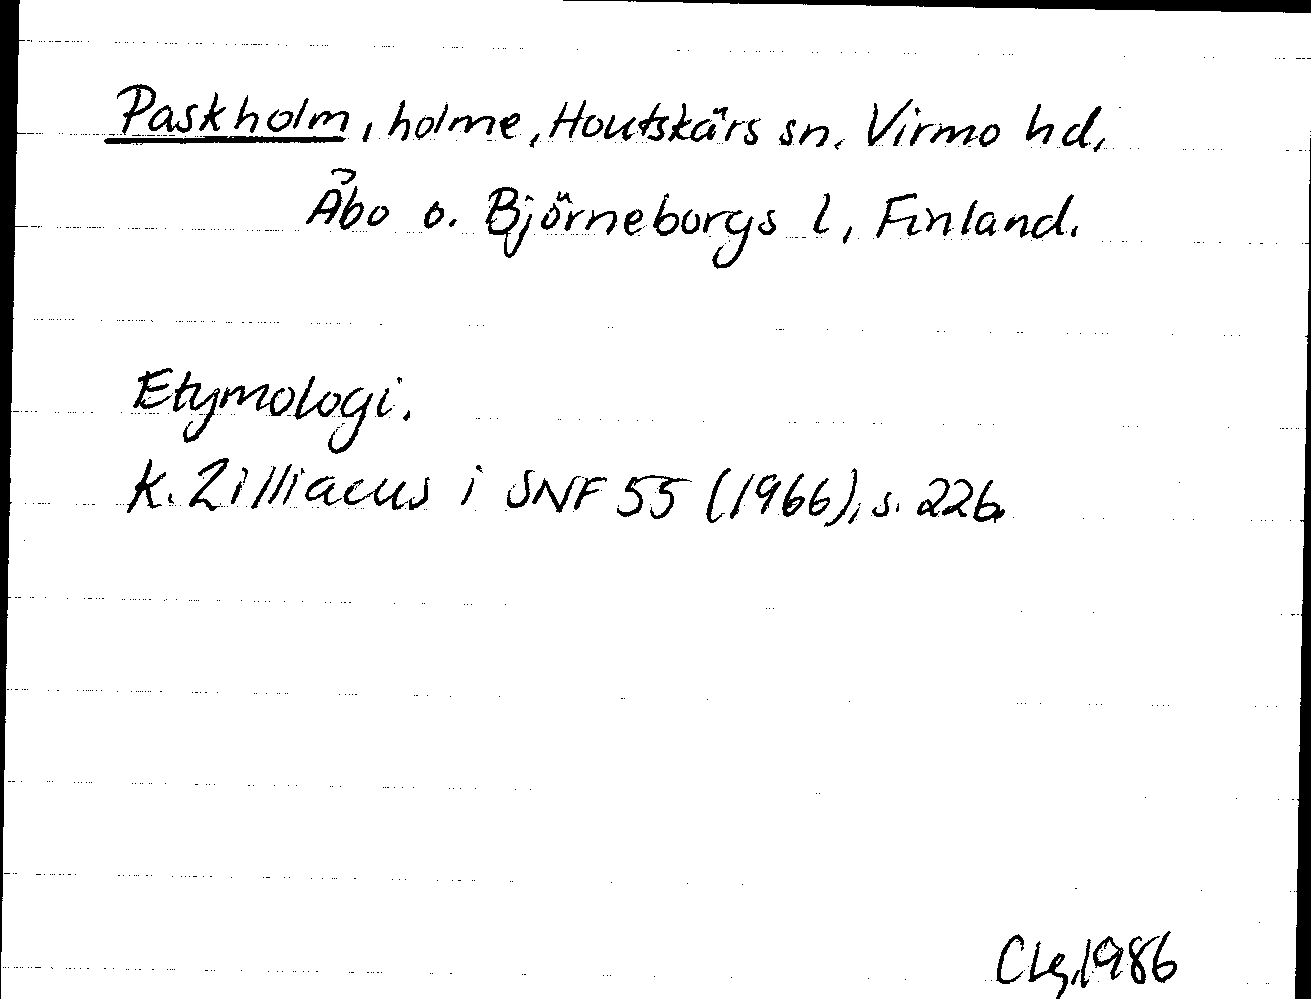 Paskholm, holme, Houtskärs sn. Virmo hd,
Åbo o. Björneborgs l, Finland.
Etymologi.
K. Zilliacus i SNF 55 (1966), s. 226.
CLg, 1986